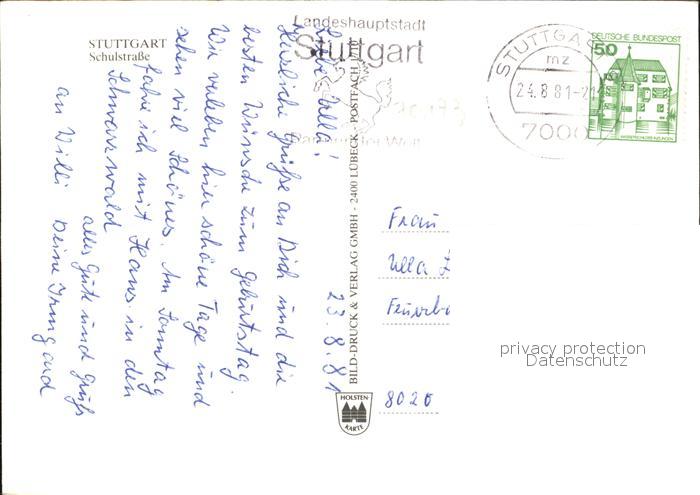 STUTTGART
Schulstraße
Landeshauptstadt
Stuttgart
Partner der Welt
STUTTGART
mz
24.8.81-21
7000
DEUTSCHE BUNDESPOST
50
WASSERSCHLOSS INZLINGEN
23.8.81
Liebe Ulla!
Herzliche Grüße an Dich und die
besten Wünsche zum Geburtstag.
Wir verleben hier schöne Tage und
sehen viel Schönes. Am Sonntag
fahre ich mit Hans in den
Schwarzwald
alles Gute und Gruß
an Willi Deine Irmgard
BILD-DRUCK & VERLAG GMBH · 2400 LÜBECK · POSTFACH 1710
HOLSTEN-
KARTE
Frau
Ulla
8020
privacy protection
Datenschutz